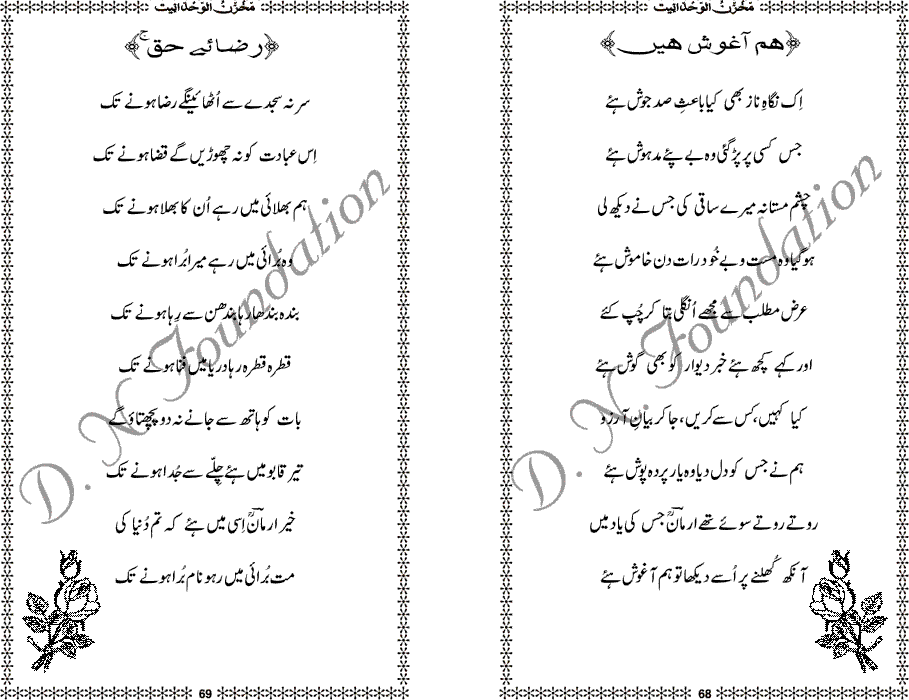 مَخْزَنُ الوَحْدَانِیت
﴿ھم آغوش ھیں﴾
اِک نگاہِ ناز بھی کیا باعثِ صد جوش ہئے
جس کسی پر پڑ گئی وہ بے پئے مدہوش ہئے
چشم مستانہ میرے ساقی کی جس نے دیکھ لی
ہوگیا وہ مست و بے خُود رات دن خاموش ہئے
عرض مطلب سے مجھے اُنگلی بتا کر چُپ کئے
اور کہے کچھ ہئے خبر دیوار کو بھی گوش ہئے
کیا کہیں، کس سے کریں، جا کر بیانِ آرزو
ہم نے جس کو دل دیا وہ یار پردہ پوش ہئے
روتے روتے سوئے تھے ارمانؔ جس کی یاد میں
آنکھ کُھلنے پر اُسے دیکھا تو ہم آغوش ہئے
68
مَخْزَنُ الوَحْدَانِیت
﴿رضائے حق ج﴾
سر نہ سجدے سے اُٹھائینگے رضا ہونے تک
اِس عبادت کو نہ چھوڑیں گے قضا ہونے تک
ہم بھلائی میں رہے اُن کا بھلا ہونے تک
وہ بُرائی میں رہے میرا بُرا ہونے تک
بندہ بندھا رہا بندھن سے رِہا ہونے تک
قطرہ قطرہ رہا دریا میں فنا ہونے تک
بات کو ہاتھ سے جانے نہ دو پچھتاؤ گے
تیر قابو میں ہئے چِلّے سے جُدا ہونے تک
خیر ارمانؔ اِسی میں ہئے کہ تم دُنیا کی
مت بُرائی میں رہو نام بُرا ہونے تک
69
D. N. Foundation
D. N. Foundation